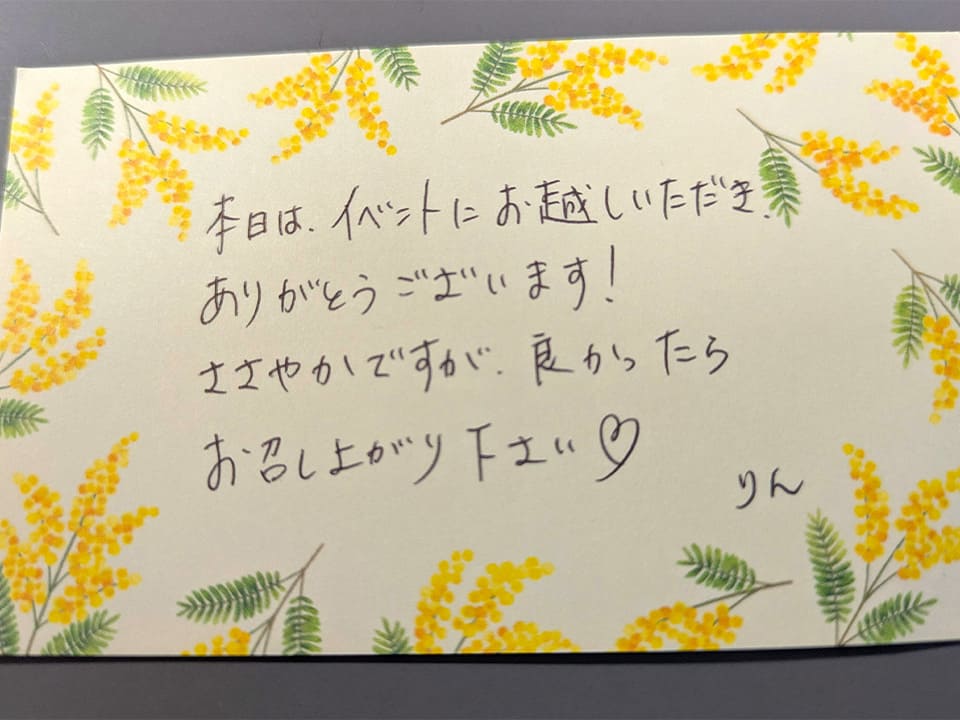 本日は、イベントにお越しいただき、
ありがとうございます!
ささやかですが、良かったら
お召し上がり下さい♡
りん